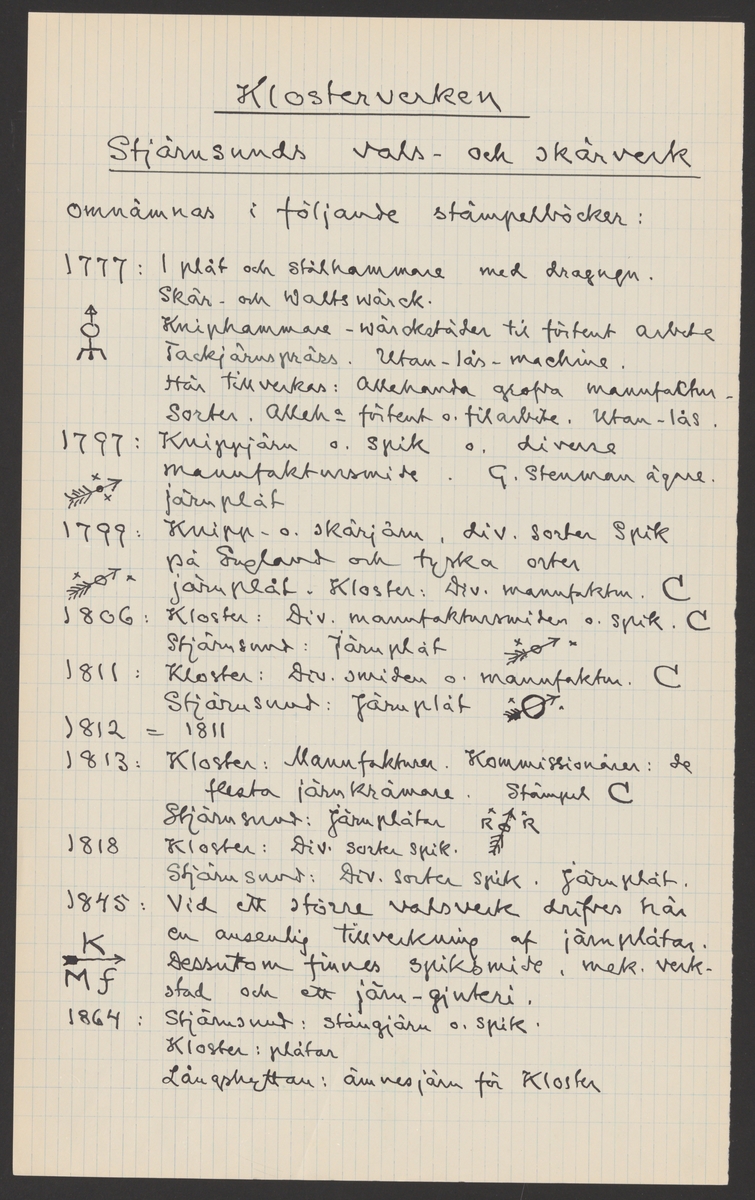 Klosterverken
Stjärnsunds vals- och skärverk
omnämnas i följande stämpelböcker:
1777: 1 plåt och stålhammare med dragugn.
Skär- och Waltswärck.
Kniphammare-wärckstäder til förtent arbete
Tackjärnspräss. Utan-lås-machine.
Här tillverkas: Allehanda grofva manufaktur-
Sorter. Alleh:a förtent o. filarbete. Utan-lås.
1797: Knippjärn o. spik o. diverse
manufaktursmide. G. Stenman ägare.
järnplåt
1799: Knipp- o. skärjärn, div. sorter Spik
på England och tyska orter
järnplåt. Kloster: Div. manufaktur. C
1806: Kloster: Div. manufaktursmiden o. spik. C
Stjärnsund: Järnplåt
1811: Kloster: Div. smiden o. manufaktur. C
Stjärnsund: Järnplåt
1812 = 1811
1813: Kloster: Manufakturer. Kommissionärer: de
flesta järnkrämare. Stämpel C
Stjärnsund: Järnplåtar R R
1818 Kloster: Div. sorter spik.
Stjärnsund: Div. sorter spik. Järnplåt.
1845: Vid ett större valsverk drifves här
en ansenlig tillverkning af järnplåtar.
K
Dessutom finnes spiksmide, mek. verk-
M f
stad och ett järn-gjuteri.
1864: Stjärnsund: stångjärn o. spik.
Kloster: plåtar
Långshyttan: ämnesjärn för Kloster